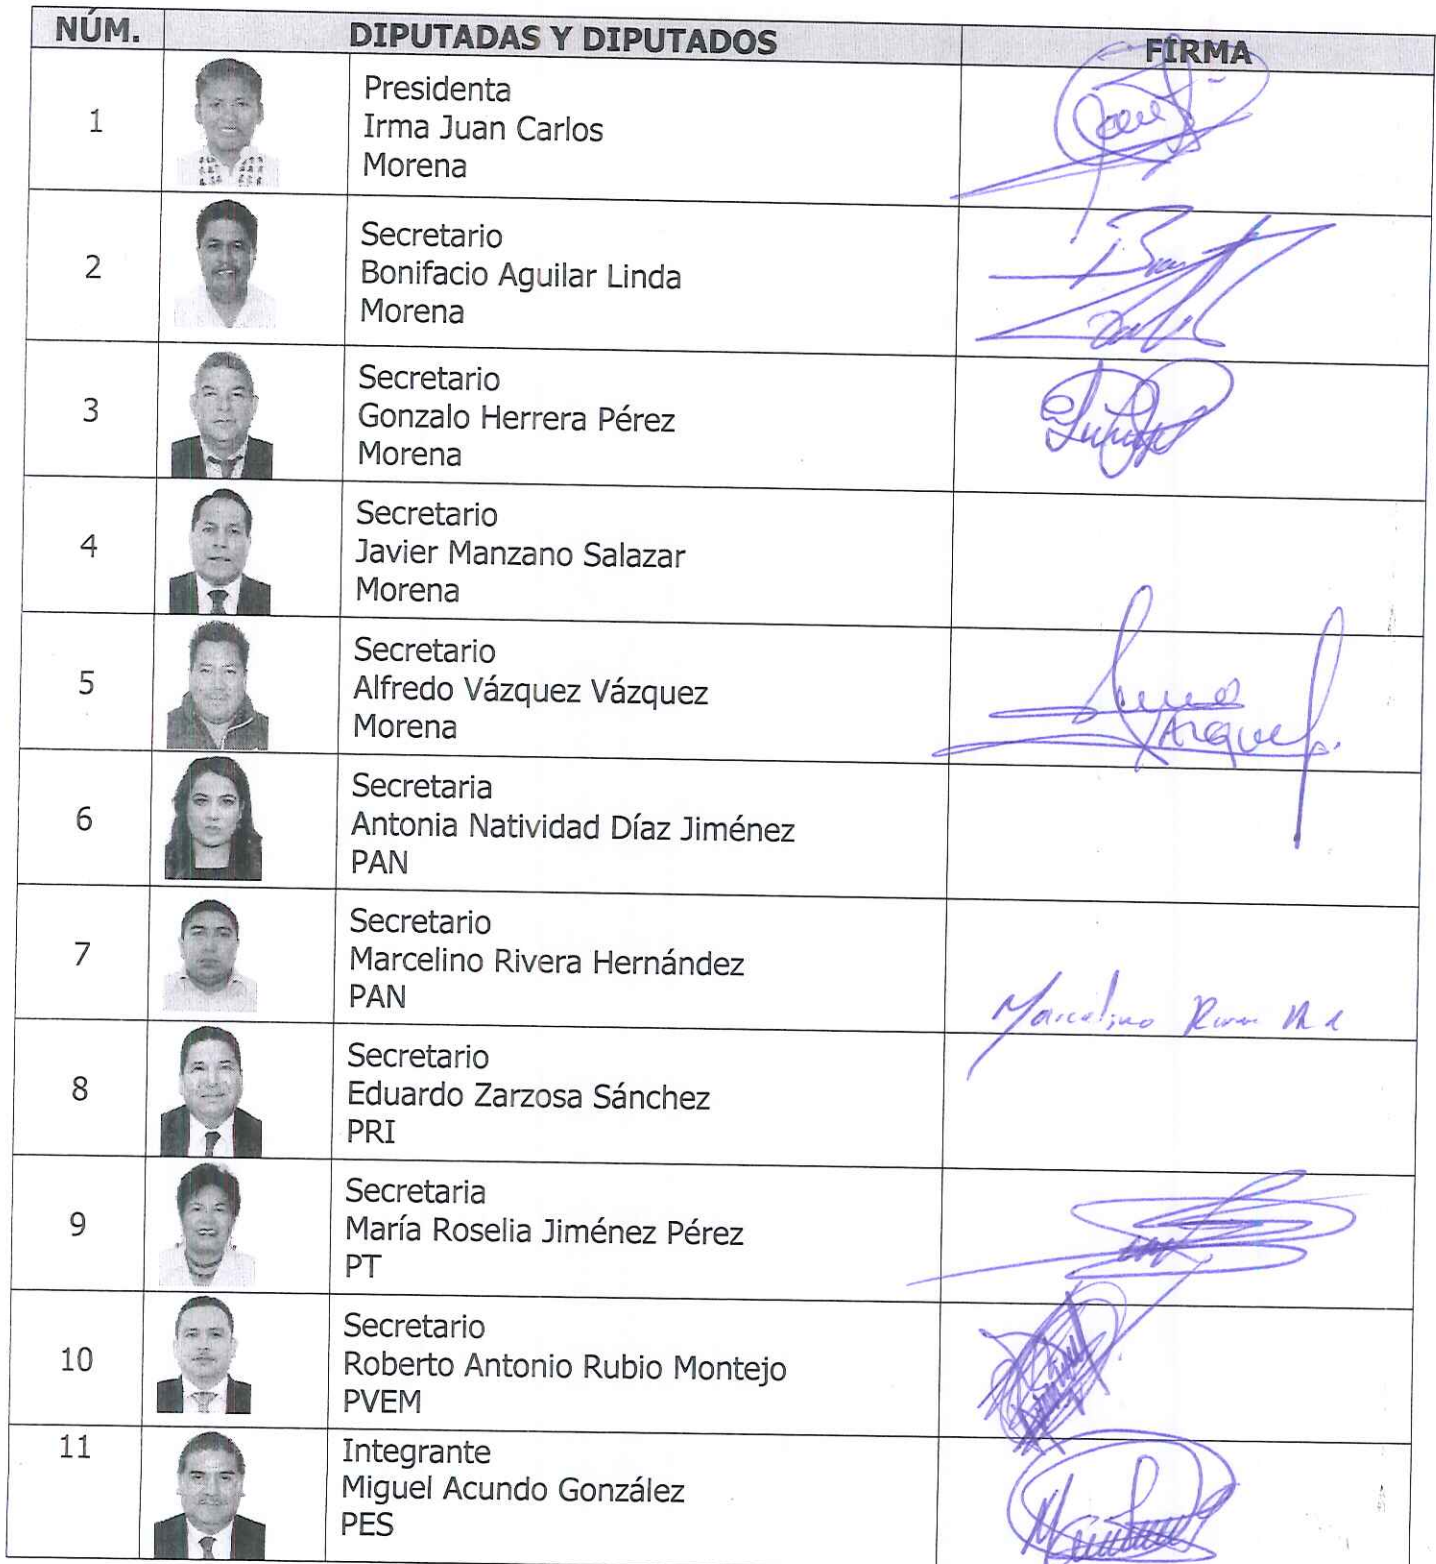 NÚM. DIPUTADAS Y DIPUTADOS FIRMA
1
Presidenta
Irma Juan Carlos
Morena
2
Secretario
Bonifacio Aguilar Linda
Morena
3
Secretario
Gonzalo Herrera Pérez
Morena
4
Secretario
Javier Manzano Salazar
Morena
5
Secretario
Alfredo Vázquez Vázquez
Morena
6
Secretaria
Antonia Natividad Díaz Jiménez
PAN
7
Secretario
Marcelino Rivera Hernández
PAN
Marcelino
8
Secretario
Eduardo Zarzosa Sánchez
PRI
9
Secretaria
María Roselia Jiménez Pérez
PT
10
Secretario
Roberto Antonio Rubio Montejo
PVEM
11
Integrante
Miguel Acundo González
PES